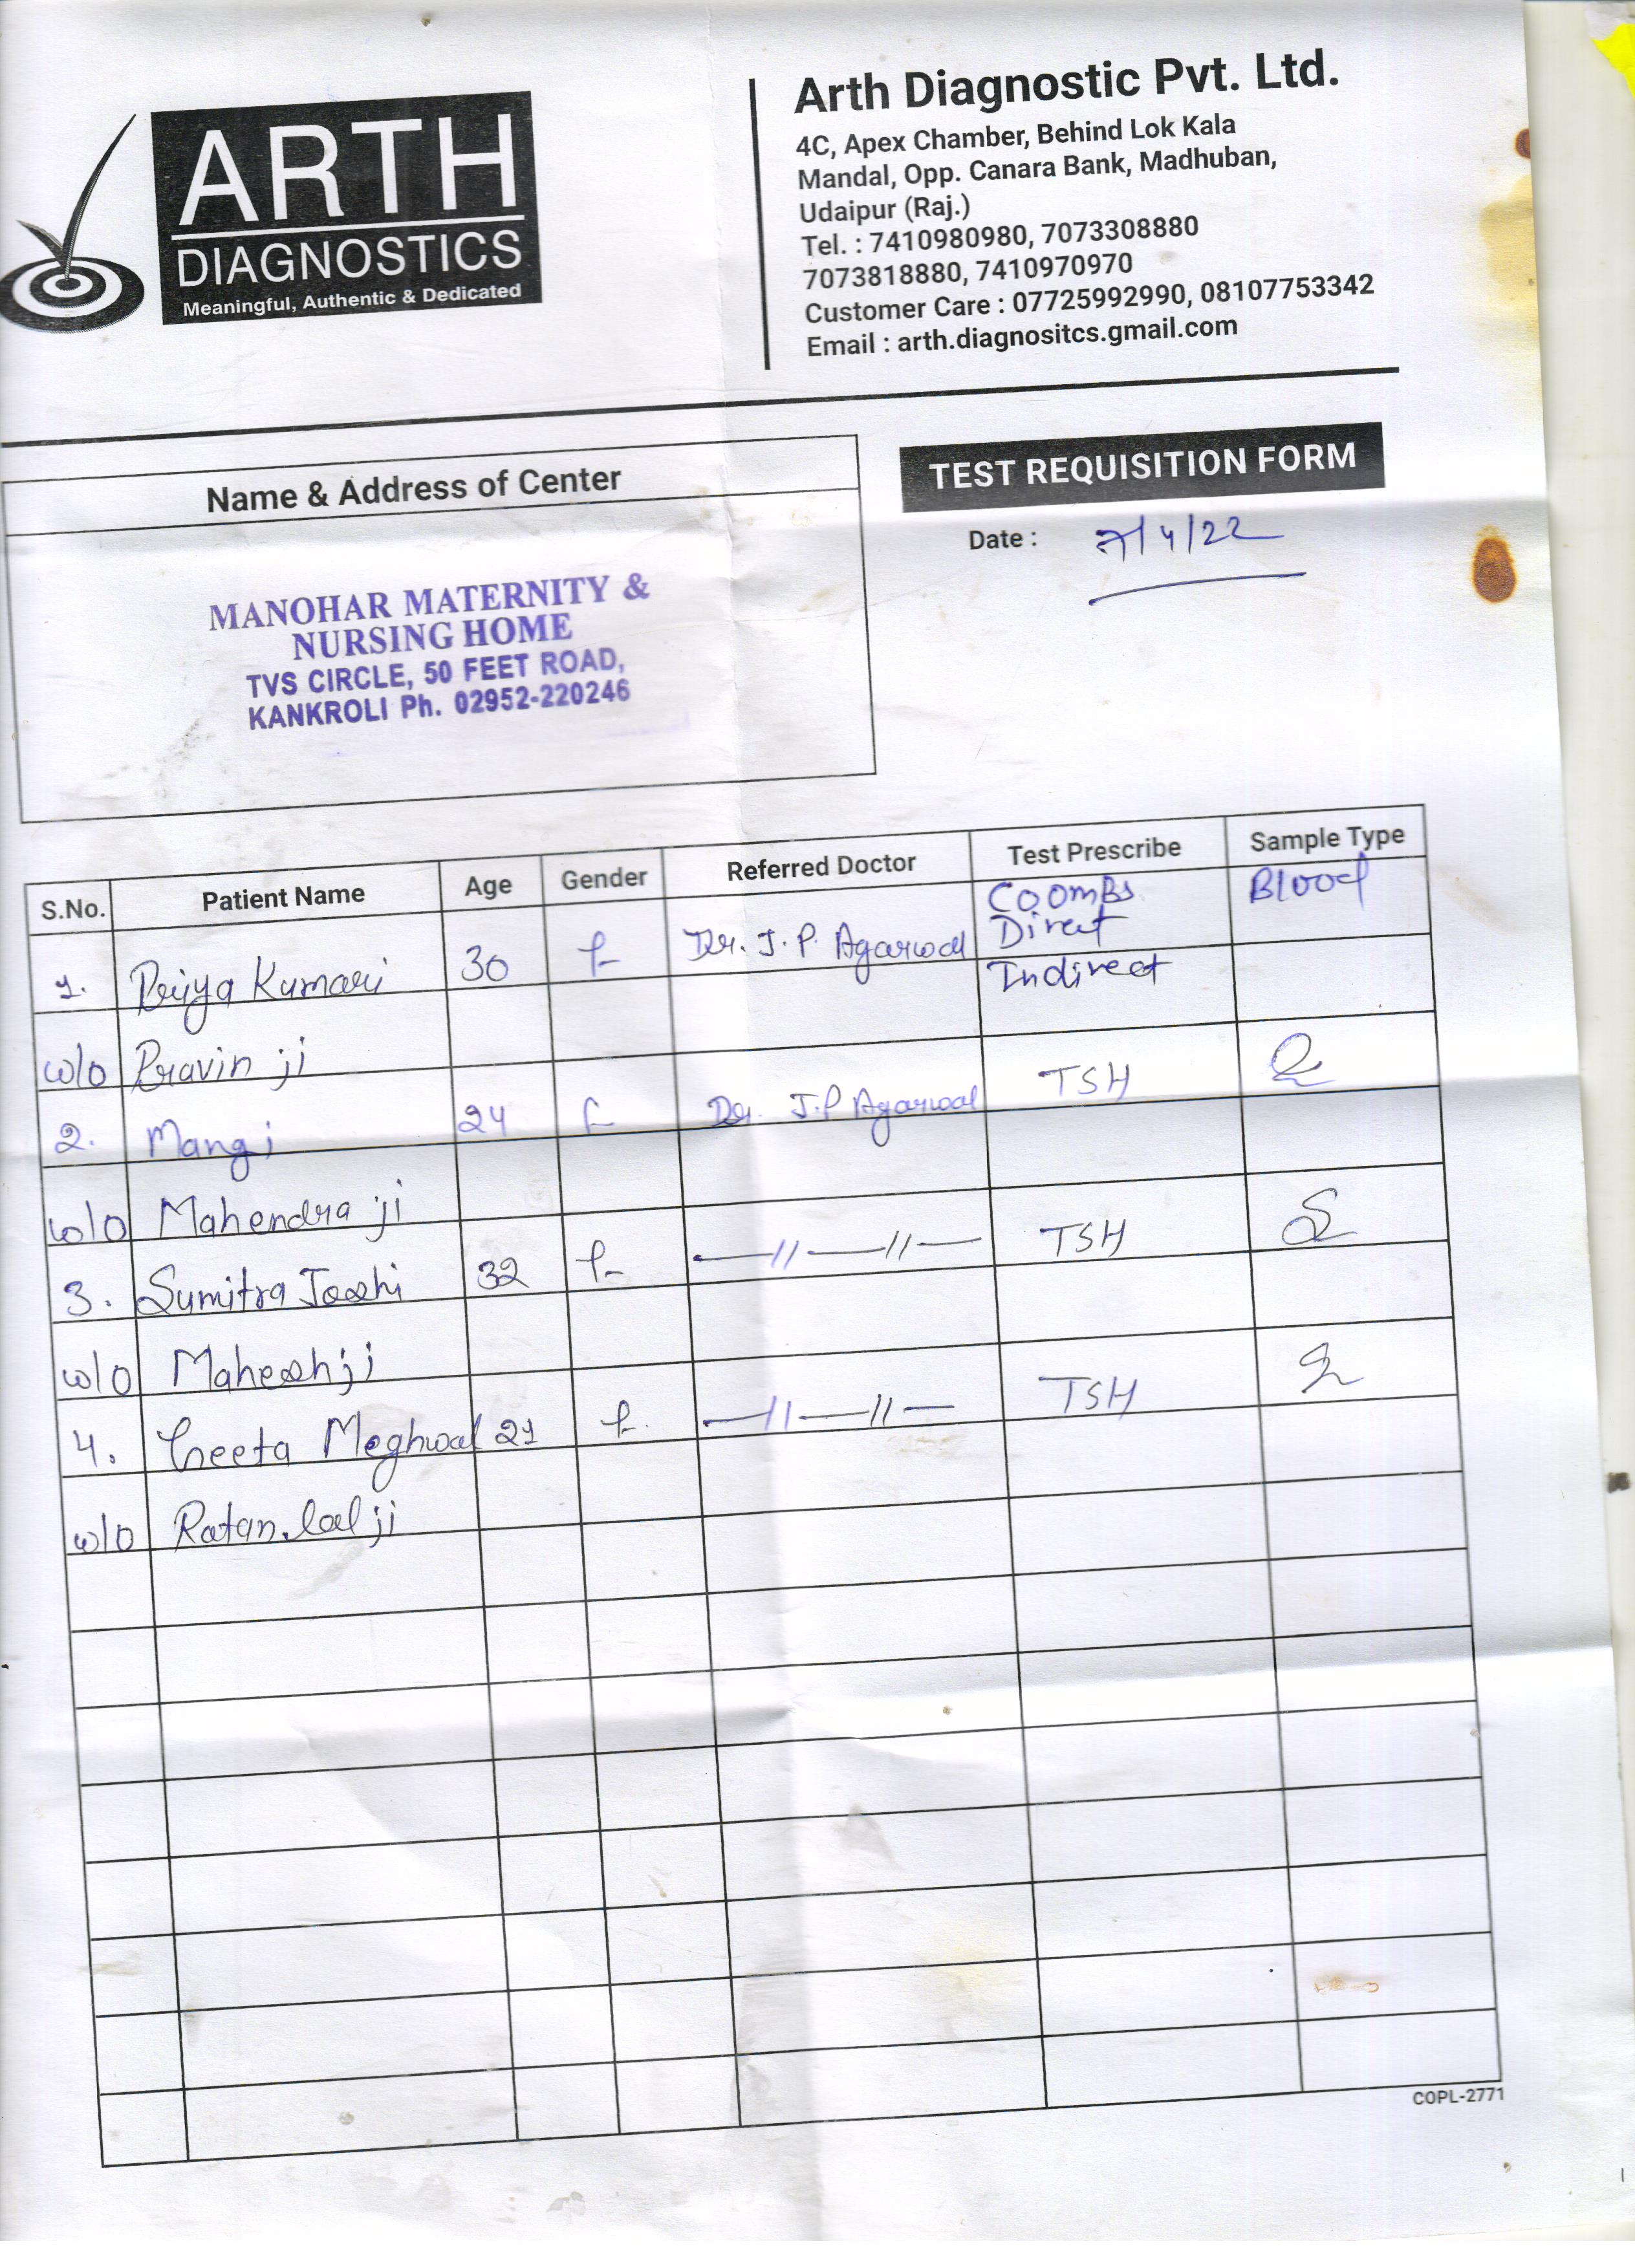 ARTH
DIAGNOSTICS
Meaningful, Authentic & Dedicated
Arth Diagnostic Pvt. Ltd.
4C, Apex Chamber, Behind Lok Kala
Mandal, Opp. Canara Bank, Madhuban,
Udaipur (Raj.)
Tel. : 7410980980, 7073308880
7073818880, 7410970970
Customer Care : 07725992990, 08107753342
Email : arth.diagnositcs.gmail.com
Name & Address of Center
MANOHAR MATERNITY &
NURSING HOME
TVS CIRCLE, 50 FEET ROAD,
KANKROLI Ph. 02952-220246
TEST REQUISITION FORM
Date : 7/4/22
S.No. Patient Name Age Gender Referred Doctor Test Prescribe Sample Type
1. Priya Kumari 30 f Dr. J. P. Agarwal Coombs Direct Blood
Indirect
w/o Pravin ji
2. Mangi 24 f Dr. J.P Agarwal TSH
w/o Mahendra ji
3. Sumitra Joshi 32 f —//—//— TSH
w/o Maheshji
4. Geeta Meghwal 21 f. —//—//— TSH
w/o Ratan lal ji
COPL-2771